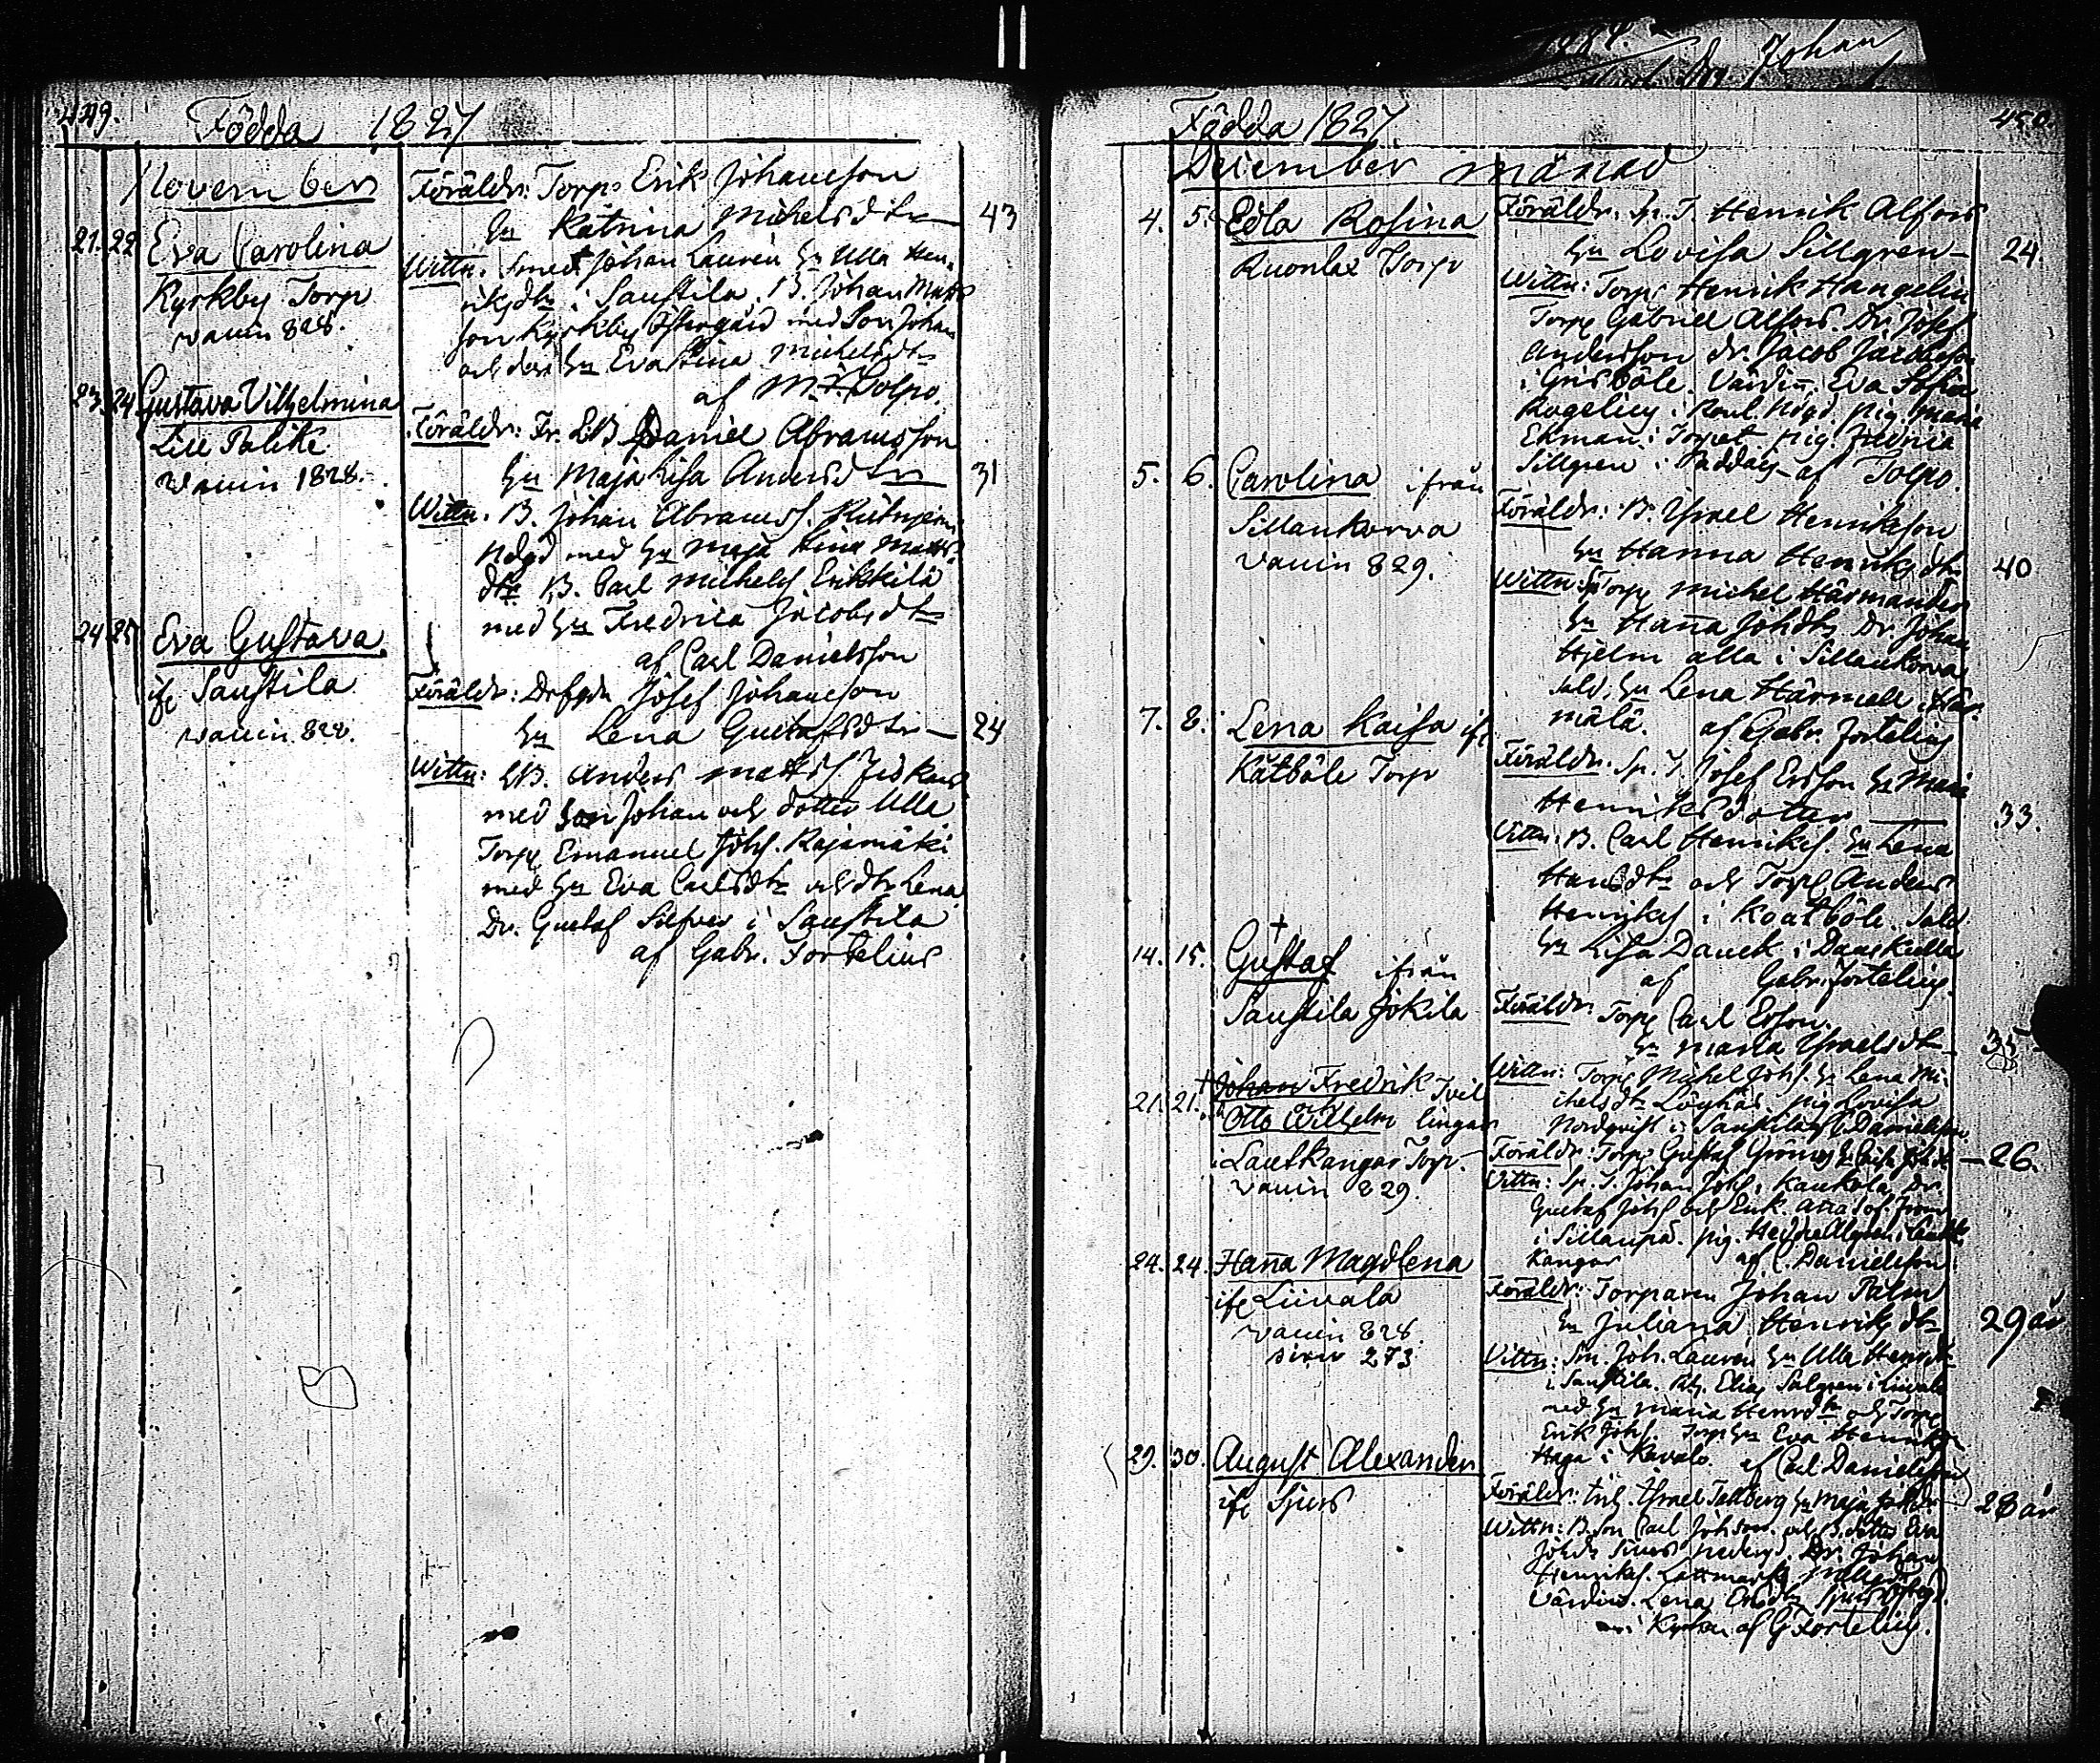 449.
Födda 1827
November
21. 22 Eva Carolina
Kyrkby Torp
vaccin 828.
Föräldr: Torp. Erik Johansson
hu Katrina Michelsdtr 43
Wittn. Smed. Johan Lauren hu Ulla Hen-
riksdtr i Saustila. B. Johan Matts
son Kyrkby Östergård med Son Johan
och des hu Eva Stina Michelsdtr
af M. J. Tolpo.
23. 24 Gustava Vilhelmina
Lill Palike
vaccin 1828.
Föräldr: Fr. LB Daniel Abramsson
hu Maja Lisa Andersdtr 31
Wittn. B. Johan Abramss.
Ndgd med hu Maja Stina Matts
dtr B. Carl Michels Erikkilä
med hu Fredrica Jacobsdtr
af Carl Danielsson
24 25 Eva Gustava
ifr Saustila
vaccin 828.
Föräldr: Josef Johansson
hu Lena Gustafsdtr 24
Wittn: LB. Anders Mattss.
med Son Johan och dotter Ulla
Torp Emanuel Johs. Rajamäki
med hu Eva Carlsdtr och dtr Lena
Dr. Gustaf Silfver i Saustila
af Gabr. Fortelius
1884.
Johan
450
Födda 1827.
December månad
4. 5. Edla Rosina
Ruonlax Torp
Föräldr. Sp. T. Henrik Alfors
hu Lovisa Sillgren 24.
Wittn: Torp. Henrik Hangelin
Torp Gabriel Alfors. Dr. Josef
Andersson dr. Jacob Jacobsson
i Grisböle. Värdin. Eva Sofia
Rogelius i Ndgd. pig Maria
Ekman i Torpet pig. Fredrica
Sillgren i Paddais af Tolpo.
5. 6. Carolina ifrån
Sillankorva
vaccin 829.
Föräldr: B. Israel Henriksson
hu Hanna Henriksdtr 40
Wittn: Torp Michel Härmander
hu Hanna Johdtr Dr. Johan
Hjelm alla i Sillankorva
Sold. hu Lena Härmell i Här-
mälä. af Gabr. Fortelius
7. 8. Lena Kaisa ifr
Kätböle Torp
Föräldr. Sp. T. Josef Ersson hu Maria
Henriksdotter 33.
Vittn: B. Carl Henrikss. hu Lena
Hansdtr och Torp Anders
Henrikss i Koatböle. Sold
hu Lisa Danck i Danskulla
af Gabr. Fortelius.
14. 15. † Gustaf ifrån
Saustila Jokila
Föräldr. Torp Carl Ersson.
hu Maria Israelsdtr 35
Wittn: Torp Michel Johs. hu Lena Mi-
chelsdtr pig Lovisa
Nordqvist i Saustila af C. Danielsson
21. 21. † Johan Fredrik Tvil
och
Otto Wilhelm lingar
i Lautkangar Torp.
vaccin 829.
Föräldr: Torp. Gustaf 26.
Vittn: Sp. T. Johan Johs. i Kaukola Dr
Gustaf Johs och Enk. Anna
i Sillanpä. pig. Hedda
kangar af C. Danielsson
24. 24. Hanna Magdlena
ifr Liivala
vaccin 828.
sidn 273.
Föräldr: Torparen Johan Palm
hu Juliana Henriksdtr 29 år
Vittn: Sm. Joh. Lauren hu Ulla Henrdtr
i Saustila. Elias Salgren i Liivala
med hu Maria Henrdtr och Torp
Erik Johs. Torp hu Eva
Haga i Kavalo. af Carl Danielsson
29. 30. August Alexander
ifr Sjurs
Föräldr: Israel Tallberg hu Maja 28 år
Wittn: B. Son Carl Johsson. och B. dotter Eva
Johdtr Dr. Johan
Henrikss.
Värdin. Lena
i Kyrkan af G Fortelius.